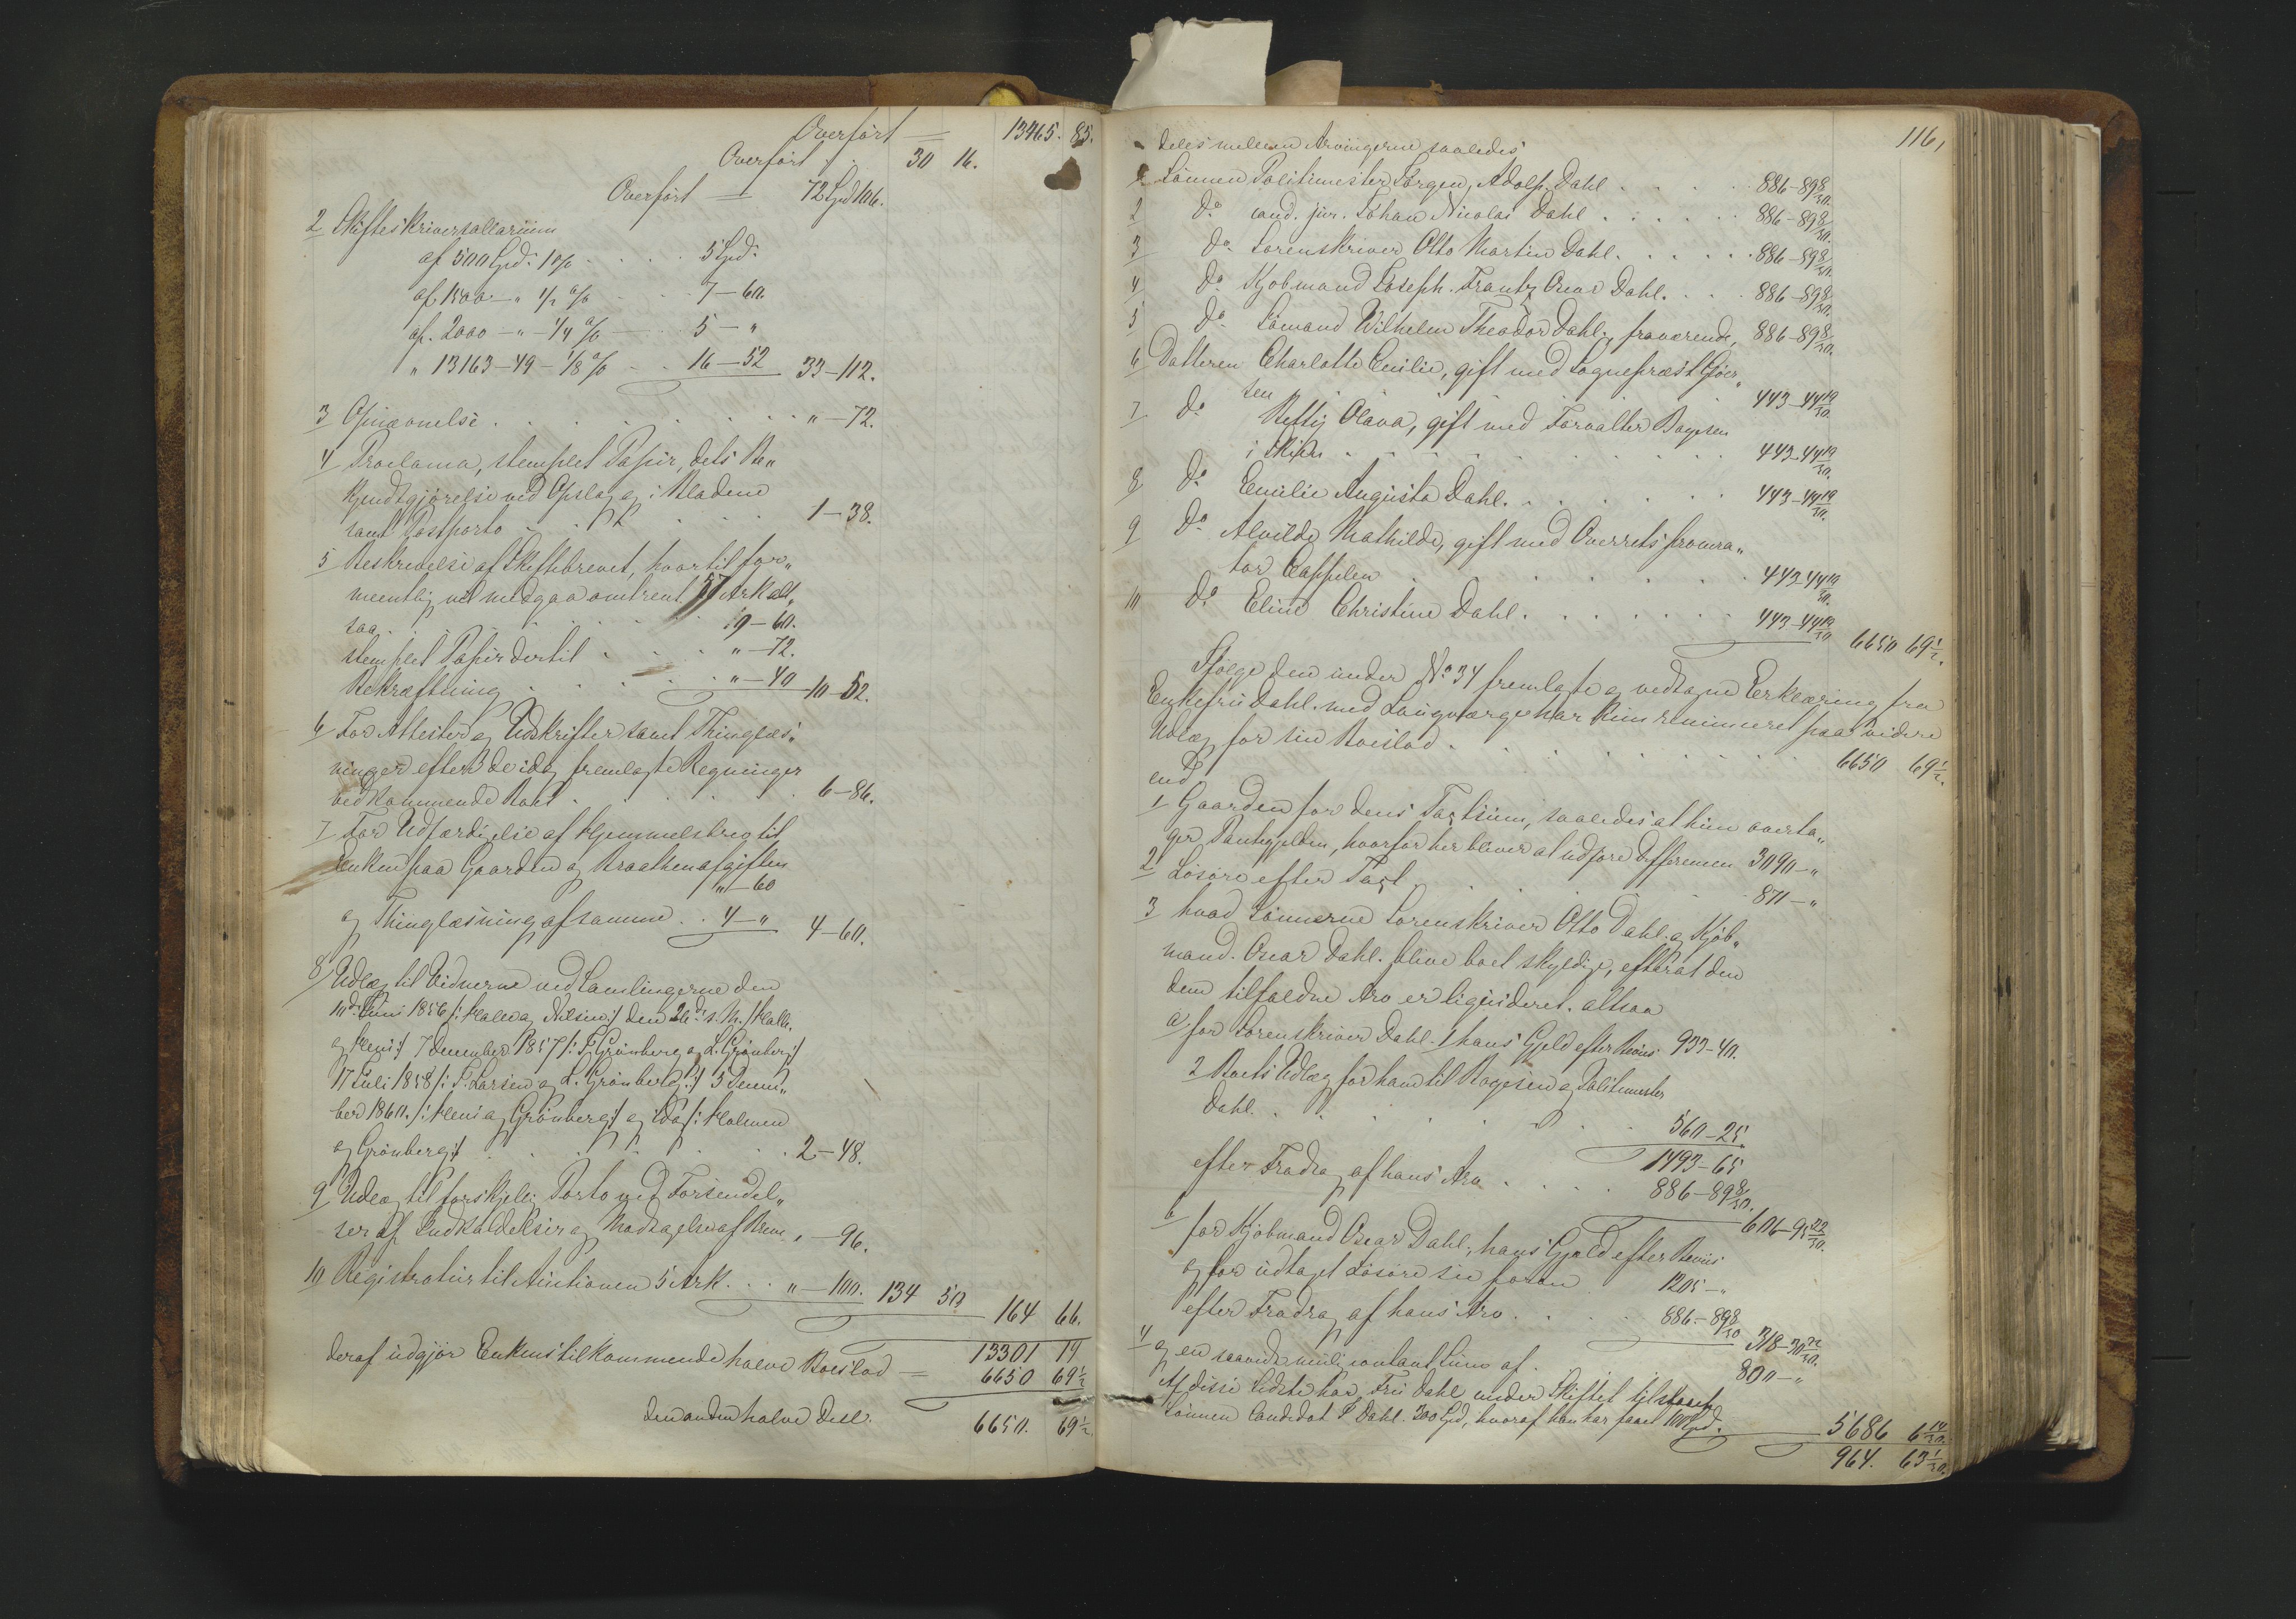 Overført — 13465. 85.
Overført . . 30 16.
Overført — 72 Spd 106.
2 Skifteskriversallarium
af 500 Spd. 1 % . . . . 5 Spd.
af 1500 — " ½ % . . 7 — 60.
af. 2000 — " — ¼ % — 5 — "
" 13163 — 49 — ⅛ % . . 16 — 52 33 — 112.
3 Opnævnelse . . . . . . . . . " — 72.
4 Proclama, stemplet Papir, dets Be„
kjendtgjørelse ved Opslag og i Bladene
samt Postporto . . . . . . 1 — 38.
5 Beskrivelse af Skiftebrevet, hvortil for„
meentlig vil medgaa omtrent 57 Ark alt„
saa . . . . . . . . 19 — 60.
stemplet Papir dertil . . . . " — 72.
Bekræftning . . . . . . " — 40 10 — 52.
6 For Attester og Udskrifter samt Thinglæs„
ninger efter de idag fremlagte Regninger
vedkommende Boet . . . . . 6 — 86.
7 For Udfærdigelse af Hjemmelsbrev til
Enken paa Gaarden og Braathenafgiften
" — 60
og Thinglæsning af samme . . 4 — " 4 — 60.
8 Udlæg til Vidnerne ved Samlingerne den
10de Juni 1856 /: Halle og Nilsen :/ den 26de s. M. /: Halle.
og Heni :/ 7 December 1857 /: F. Grønberg og L. Grønberg :/
17 Juli 1858 /: F. Larsen og L. Grønberg :/ 3 Decem„
ber 1860. /: Heni og Grønberg :/ og idag /: Holmen
og Grønberg :/ . . . . . . 2 — 48.
9 Udlæg til forskjellig Porto ved Forsendel„
ser af Indkaldelser og Modtagelse af Breve " — 96.
10 Registratur til Auctionen 5 Ark . . . " — 100. 134 50 164 66.
13301 19
deraf udgjør Enkens tilkommende halve Boeslod — 6650 69½
den anden halve Deel. 6650. 69½
116,
deles mellem Arvingerne saaledes
1 Sønnen Politimester Jørgen, Adolph Dahl . . . . . 886 — 89 8/30.
2 do. cand. jur. Johan Nicolai Dahl . . . . . . 886 — 89 8/30.
3 do. Sorenskriver Otto Martin Dahl . . . . . . 886 — 89 8/30.
4 do. Kjøbmand Joseph. Frantz Oscar Dahl. . . . 886 — 89 8/30.
5 do. Sømand Wilhelm Theodor Dahl, fraværende, 886 — 89 8/30.
6 Datteren Charlotte Emilie, gift med Sognepræst Gjør„
sen . . . . 443 — 44 19/30.
7 do. Betty Olava, gift med Forvalter Boyesen
i Skien . . . . . . . . . . 443 — 44 19/30.
8 do. Emilie Augusta Dahl. . . . . . . . 443 — 44 19/30.
9 do. Alvilde Mathilde, gift med Overretsprocura„
tor Cappelen . . . . . . . . 443 — 44 19/30.
10 do. Eline Christine Dahl. . . . . . . . 443 — 44 19/30 6650 69½.
Ifølge den under No 34 fremlagte og vedtagne Erklæring fra
Enkefru Dahl med Laugværge har hun renunceret paa videre
Udlæg for sin Boeslod . . . . . . . . . . 6650 69½.
end
1 Gaarden for dens Taxtsum, saaledes at hun overta„
ger Pantegjelden, hvorfor her bliver at udføre Differencen 3090 — "
2 Løsøre efter Taxt . . . . . . . . 870 — "
3 hvad Sønnerne Sorenskriver Otto Dahl og Kjøb„
mand. Oscar Dahl. blive boet skyldige, efterat den
dem tilfaldne Arv er liqvideret. altsaa
a for Sorenskriver Dahl. 1 hans Gjeld efter Beviis 933 — 40.
2 Boets Udlæg for ham til Boyesen og Politimester
Dahl. . . . . . . . . 560 — 25.
1493 — 65
efter Fradrag af hans Arv . . . . . 886 — 89 8/30. 606 — 95 22/30.
b for Kjøbmand Oscar Dahl, hans Gjeld efter Beviis
og for udtaget Løsøre see foran 1205 — "
efter Fradrag af hans Arv . . . . 886 — 89 8/30 318 — 30 22/30.
4 og en saavidt mulig contant Sum af . . . . . 800 — "
Af disse sidste har Fru Dahl under Skiftet tilstaaet
Sønnen Candidat J. Dahl. 300 Spd, hvoraf han har faaet 100 Spd. 5686 6 14/30.
964. 63 1/30.